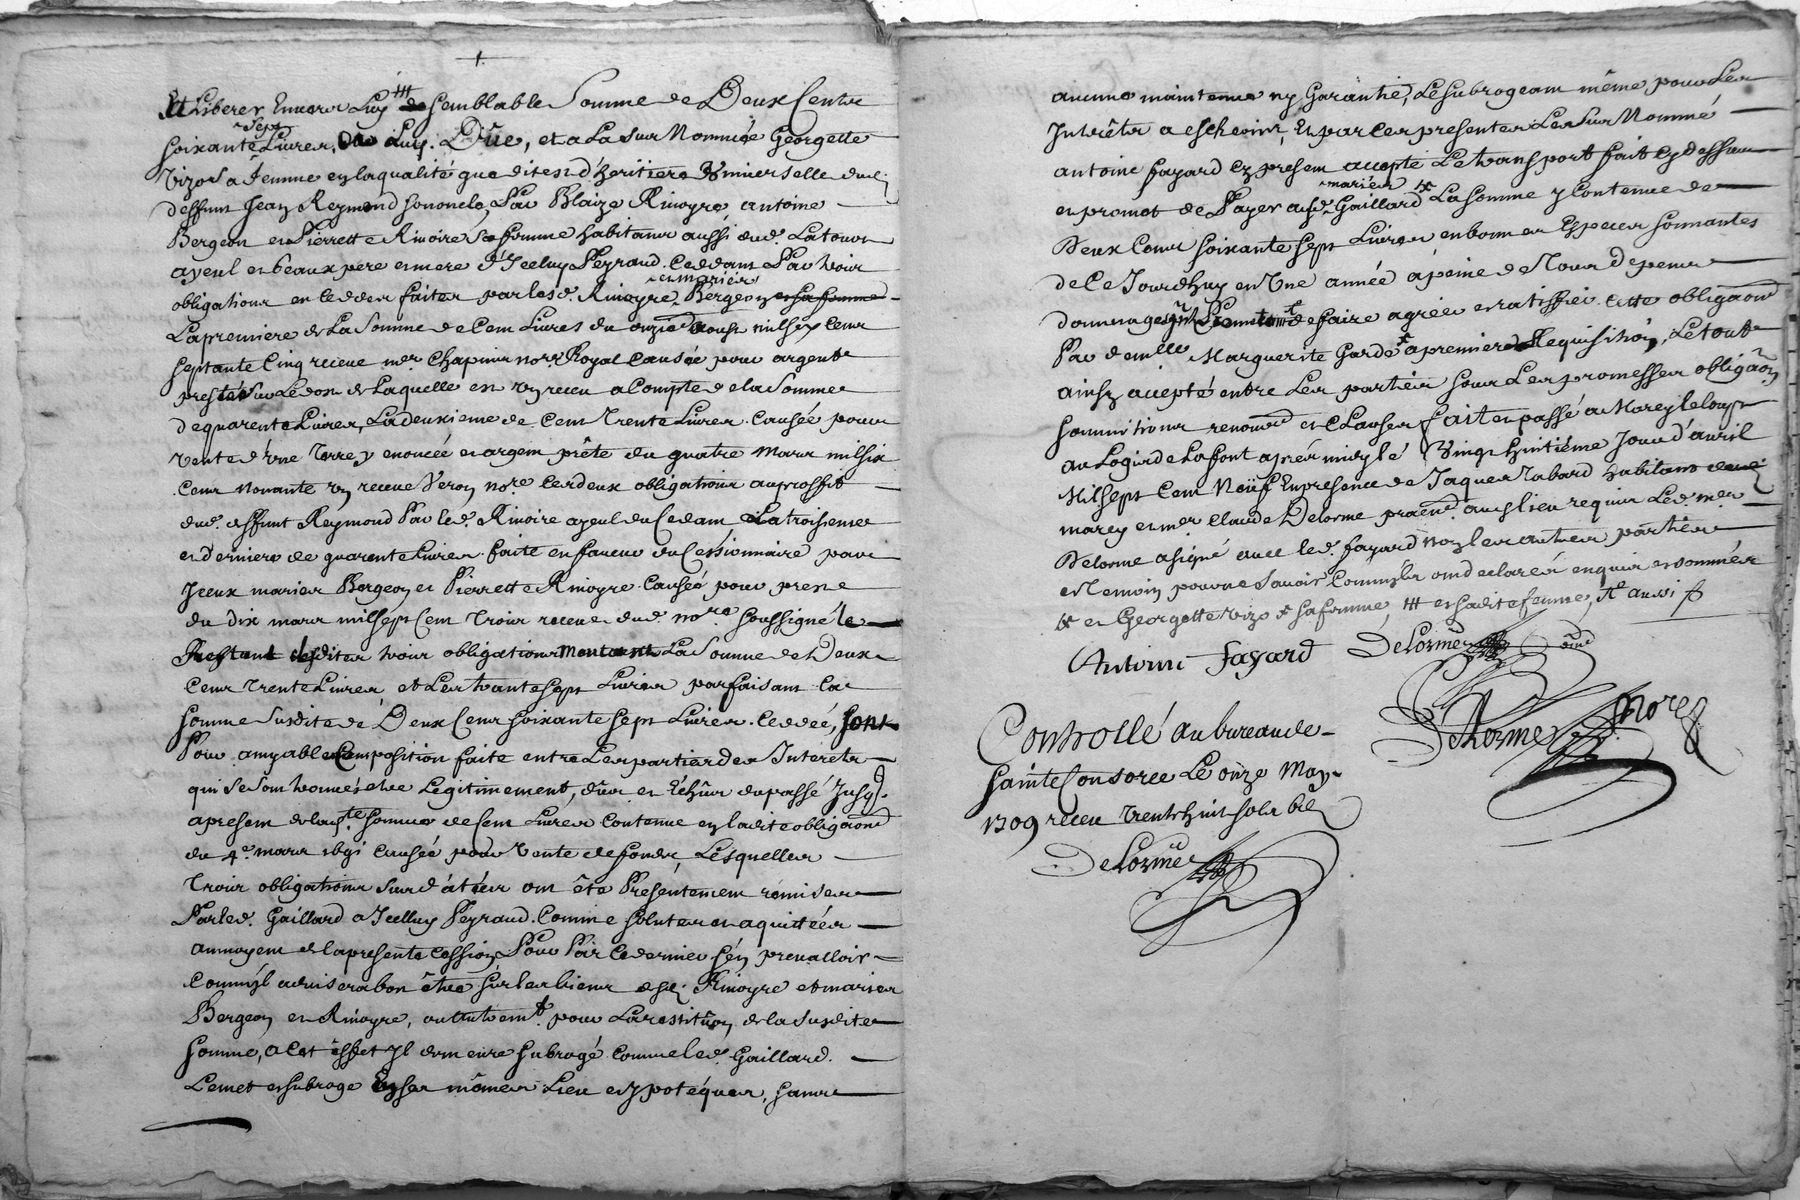 Et Liberer Envers Luy ttt de semblable Somme de Deux Cents
soixante sept Livres, a Luy. Dûe, et a La sus Nommée Georgette
Vizo sa femme en laqualité que dit est d'heritiere Universelle dud.
deffunt Jean Reymond son oncle, Par Blaize Rivoyre antoine
Bergeon et Pierrette Rivoire sa femme habitants aussi aud. Latour
ayeul et beaux pere et mere d'Icelluy Peyraud. Ceddant Par trois
obligations en ceddes faites par lesd. Rivoyre et mariés Bergeon et sa femme
La premiere de La Somme de Cent Livres du onzie aoust mil six Cent
septante Cinq receue me. Chapuis nore Royal Causée pour argent
presté sur Le dos de Laquelle est un receu a Compte de la Somme
de quarente Livres, La deuxieme de Cent Trente Livres. Causée pour
vente d'Une Terre y enoncée et argent prêté du quatre Mars mil six
Cent Nonante un receue Veron nore. Les deux obligations au proffit
dud. deffunt Reymond Par led. Rivoire ayeul du Cedant La troisieme
et derniere de quarente Livres. faite en faveur du Cessionnaire par
Iceux mariés Bergeon et Pierrette Rivoyre. Causée pour preste
du dix mars mil sept Cent Trois receue dud. nore soussigné le
Restant desdites trois obligations montant La Somme de Deux
Cent Trente Livres, et Les trante sept Livres parfaisant La
somme susdite de Deux Cent soixante sept Livres. Ceddée, sont
Pour amyable Composition faite entre Les parties des Interets
qui se sont trouvés etre Legitimement, dûs et Echûs du passé Jusq.
apresent de lad.te somme de Cent Livres Contenue en ladite obligaon
du 4e. mars 1691 Causée pour Vente de fonds, Lesquelles
Trois obligations susd'atées ont êté Présentement remises
Par led. Gaillard a Icelluy Peyraud. Comme solutes et aquittées
au moyent de la presente Cession Pour Par Ce dernier s'en prevalloir
Comm'il advisera bon être sur les biens desd. Rivoyre et mariés
Bergeon et Rivoyre, ou autremt. pour La restituon de la susdite
somme, a Cet éffet Il demeure subrogé Comme led. Gaillard.
Le met et subroge En ses mêmes Lieu et ypotéques, sans
aucune maintenue ny Garantie, Le subrogeant même, pour Les
Intrêts a escheoir, Et par Ces presentes Les sus Nommé
antoine fayard Cy present accepte Le transport fait Cy dessus
et promet de Payer ausd. mariés Gaillard La somme y Contenue de
Deux Cent soixante sept Livres en bonnes Especes sonnantes
de Ce Jourd'huy en Une année à peine de Tous depens
domages et de faire agréer et ratiffier Cette obligaon
Par demlle Marguerite Garde sa femme a premiere Requisition, Le tout
ainsy accepté entre Les parties sous Les promesses obligaon
soumitions renond et Clauses fait et passé a Marcy le loup
au Logis de Lafont après midy lé Vingt huitiéme Jour d'avril
Mil sept Cent Neuf En presence de Jaques Tabard habitant aud.
marcy et me. Claude Delorme praen. audt lieu requis Led. me.
Delorme a signé avec led. fayard non les autres parties
et Temoin pour ne savoir Comm'ils ont declarés enquis et sommés
et Georgette Vizo sa femme, ttt et sadite femme, aussi
Antoine Fayard Delorme
Delorme Nore
Controllé au bureau de
sainte Consorce Le onze May
1709 receu Trente huit sols 6d
Delorme